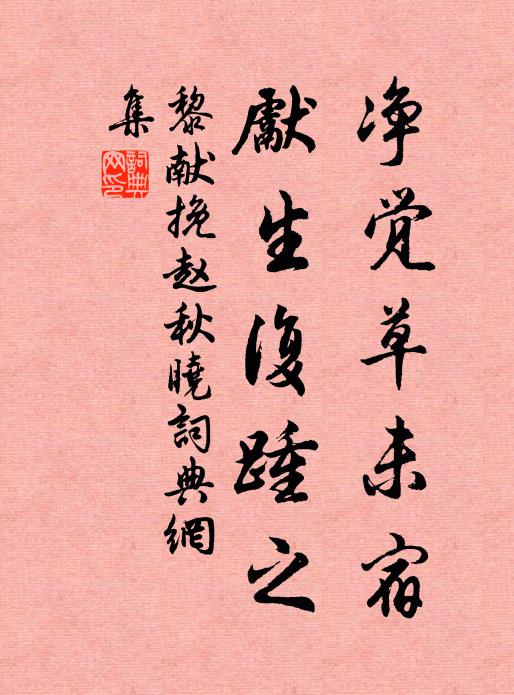 净觉草未宿
獻生復踵之
黎献挽赵秋曉詞典網
集
詞典网印